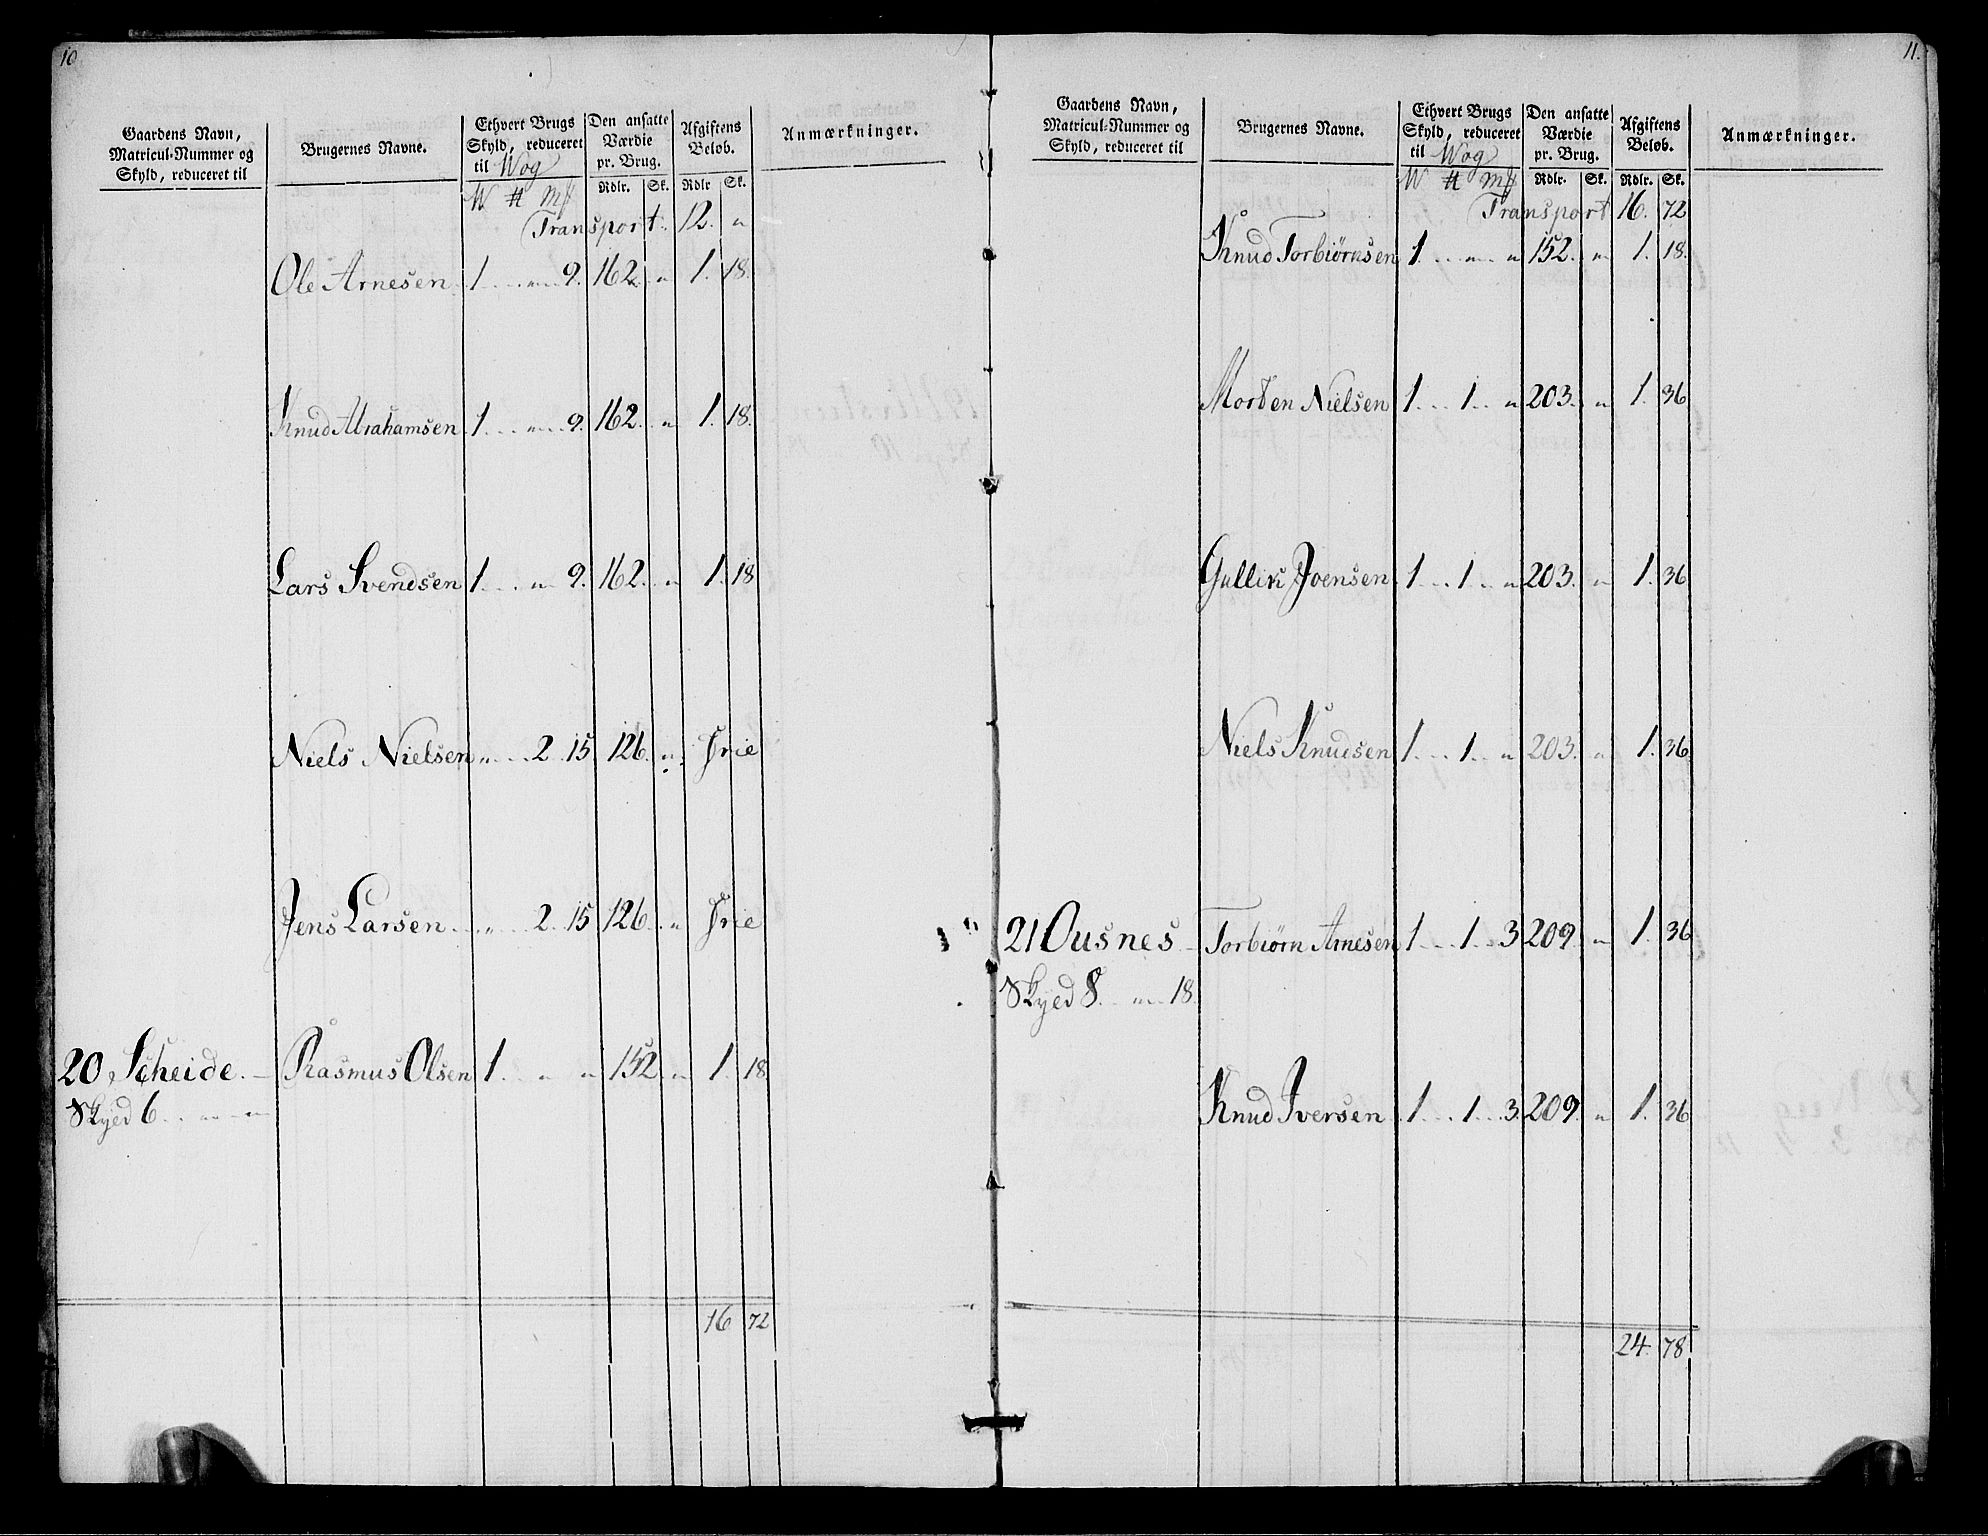 10
Gaardens Navn, Matricul-Nummer og Skyld, reduceret til
Brugernes Navne.
Ethvert Brugs Skyld, reduceret til Wog
Den ansatte Værdie pr. Brug.
Afgiftens Beløb.
Anmærkninger.
W # M Rdlr. Sk. Rdlr Sk.
Transport. 12. "
Ole Arnesen 1 " 9. 162 " 1. 18.
Knud Abrahamsen 1 " 9. 162. " 1. 18.
Lars Svendsen 1 " 9. 162. " 1. 18
Niels Nielsen " 2 15 126. " Frie
Jens Larsen " 2. 15 126. " Frie
20 Scheide. Rasmus Olsen 1. " " 152 " 1. 18
Skyed 6 " "
16 72
11.
Gaardens Navn, Matricul-Nummer og Skyld, reduceret til
Brugernes Navne.
Ethvert Brugs Skyld, reduceret til Wog
Den ansatte Værdie pr. Brug.
Afgiftens Beløb.
Anmærkninger.
W # M Rdlr. Sk. Rdlr. Sk.
Transport 16. 72
Knud Torbiørnsen 1. " " 152. " 1. 18.
Morten Nielsen 1 1. " 203. " 1. 36
Gullik Joensen 1 1 " 203. " 1. 36
Niels Knudsen 1 1 " 203. " 1. 36
21 Ousnes Torbiørn Arnesen 1 1 3 209. " 1. 36
Skyed 8. " 18.
Knud Iversen 1 1 3. 209. " 1. 36
24. 78